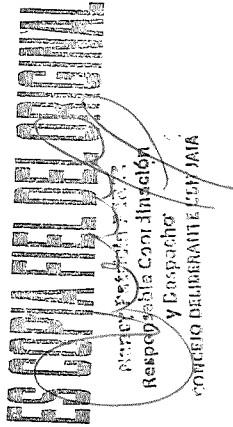 ES COPIA FIEL DEL ORIGINAL
Responsable Coordinación
y Despacho
CONCEJO DELIBERANTE USHUAIA